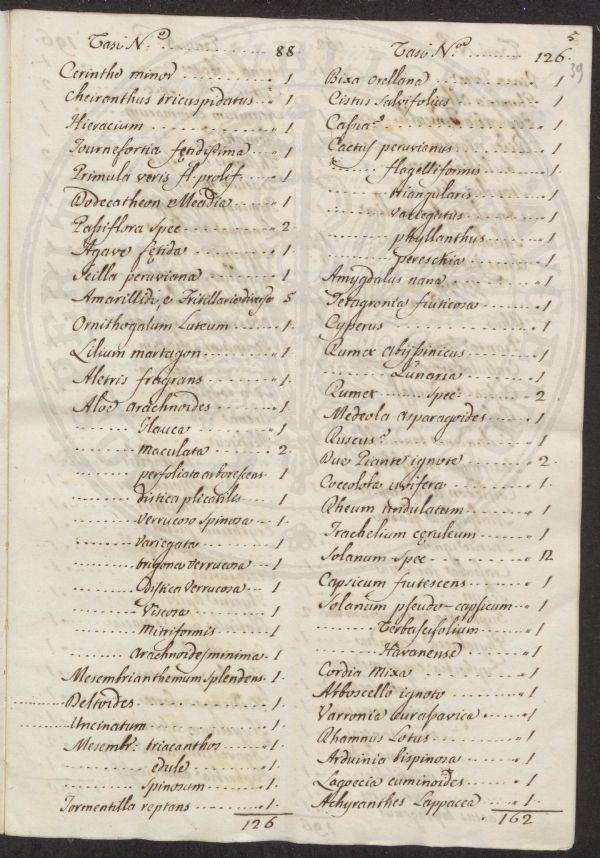 Vasi N.º 88
Cerinthe minor 1
Cheiranthus tricuspidatus 1
Hieracium 1
Tournefortia fętidissima 1
Primula veris fl. prolif. 1
Dodecatheon Meadia 1
Passiflora spec 2
Agave fętida 1
Scilla peruviana 1
Amarillidi, e Fritillarie diverse 5
Ornithogalum Luteum 1
Lilium martagon 1
Aletris fragrans 1
Aloe arachnoides 1
Glauca 1
maculata 2
perfoliata arborescens 1
distica plicatilis 1
verrucosa spinosa 1
variegata 1
trigona verrucosa 1
distica verrucosa 1
Viscosa 1
mitriformis 1
arachnoides minima 1
Mesembrianthemum splendens 1
Deltoides 1
Uncinatum 1
Mesembr: triacanthos 1
edule 1
spinosum 1
Tormentilla reptans 1
126
5
39
Vasi N.º 126
Bixa orellana 1
Cistus salvifolius 1
Cassia 1
Cactus peruvianus 1
flagelliformis 1
triangularis 1
variegatus 1
phyllanthus 1
pereschia 1
Amygdalus nana 1
Tetragonia fruticosa 1
Cyperus 1
Rumex abyssinicus 1
Lunaria 1
Rumex spec: 2
Medeola asparagoides 1
Ruscus 1
Due Piante ignote 2
Coccoloba uvifera 1
Rheum undulatum 1
Trachelium cęruleum 1
Solanum spec 12
Capsicum frutescens 1
Solanum pseudo-capsicum 1
Verbascifolium 1
Havanense 1
Cordia Mixa 1
Arboscello ignoto 1
Varronia curassavica 1
Rhamnus Lotus 1
Arduinia bispinosa 1
Lagoecia cuminoides 1
Achyranthes Lappacea 1
162